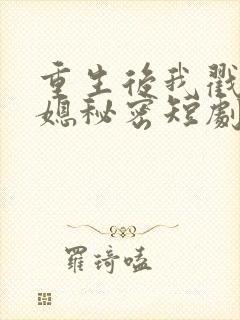 重生後我戳
媳秘密短劇
羅琦嗑